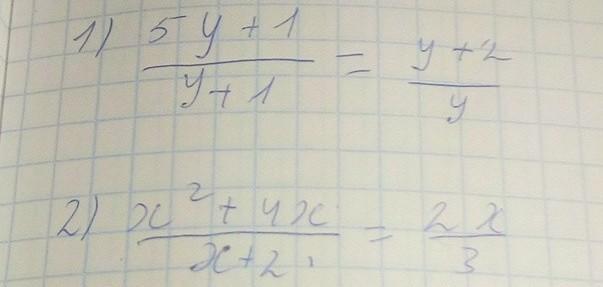 1) \frac{5y+1}{y+1} = \frac{y+2}{y}
2) \frac{x^2+4x}{x+2} = \frac{2x}{3}